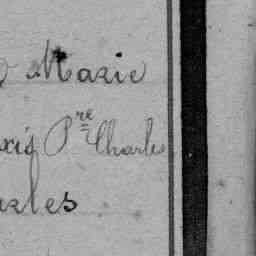 Marie
xis P.re Charles
rles